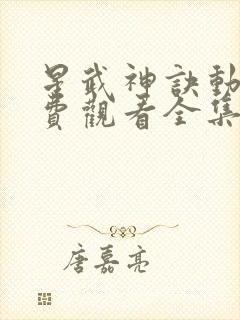 星武神訣動
費觀看全集
唐嘉亮